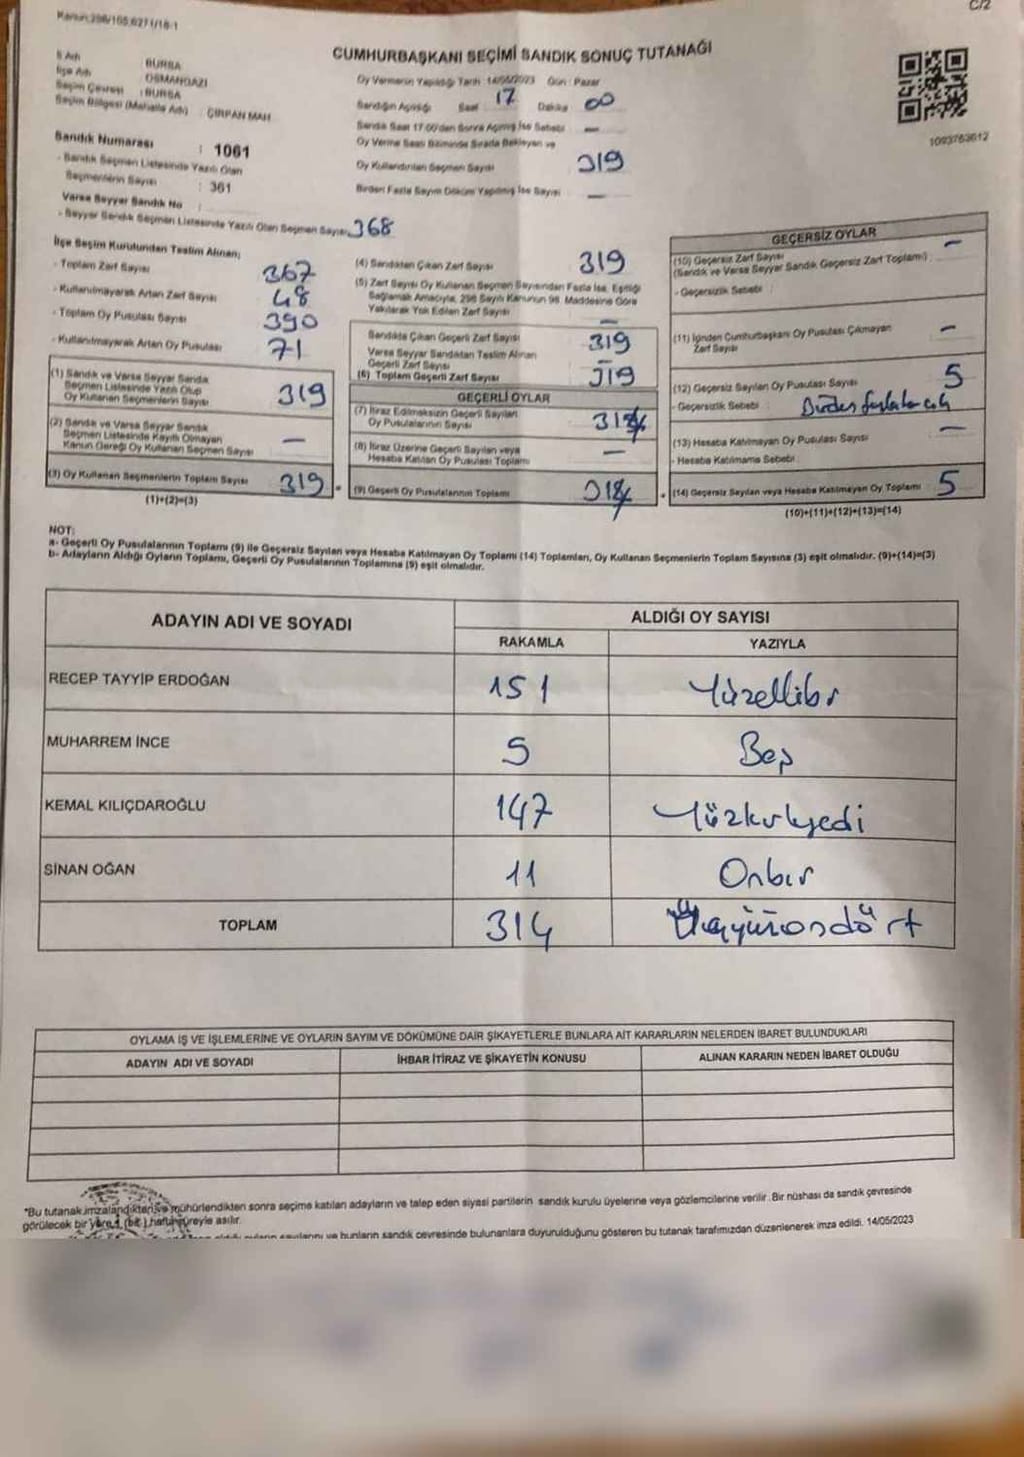 Kanun:298/105,6271/18-1
C/2
CUMHURBAŞKANI SEÇİMİ SANDIK SONUÇ TUTANAĞI
İl Adı : BURSA
İlçe Adı : OSMANGAZİ
Seçim Çevresi : BURSA
Seçim Bölgesi (Mahalle Adı) : ÇIRPAN MAH.
Sandık Numarası : 1061
- Sandık Seçmen Listesinde Yazılı Olan
Seçmenlerin Sayısı : 361
Varsa Seyyar Sandık No :
- Seyyar Sandık Seçmen Listesinde Yazılı Olan Seçmen Sayısı 368
Oy Vermenin Yapıldığı Tarih :14/05/2023 Gün : Pazar
Sandığın Açılışı Saat 17 Dakika 00
Sandık Saat 17:00'den Sonra Açılmış İse Sebebi —
Oy Verme Saati Bitiminde Sırada Bekleyen ve
Oy Kullandırılan Seçmen Sayısı 319
Birden Fazla Sayım Döküm Yapılmış İse Sayısı —
1093763612
İlçe Seçim Kurulundan Teslim Alınan;
- Toplam Zarf Sayısı 367
- Kullanılmayarak Artan Zarf Sayısı 48
- Toplam Oy Pusulası Sayısı 390
- Kullanılmayarak Artan Oy Pusulası 71
(1) Sandık ve Varsa Seyyar Sandık
Seçmen Listesinde Yazılı Olup
Oy Kullanan Seçmenlerin Sayısı 319
(2) Sandık ve Varsa Seyyar Sandık
Seçmen Listesinde Kayıtlı Olmayan
Kanun Gereği Oy Kullanan Seçmen Sayısı —
(3) Oy Kullanan Seçmenlerin Toplam Sayısı 319
(1)+(2)=(3)
(4) Sandıktan Çıkan Zarf Sayısı 319
(5) Zarf Sayısı Oy Kullanan Seçmen Sayısından Fazla İse, Eşitliği
Sağlamak Amacıyla, 298 Sayılı Kanunun 98. Maddesine Göre
Yakılarak Yok Edilen Zarf Sayısı —
Sandıkta Çıkan Geçerli Zarf Sayısı 319
Varsa Seyyar Sandıktan Teslim Alınan
Geçerli Zarf Sayısı —
(6) Toplam Geçerli Zarf Sayısı 319
GEÇERLİ OYLAR
(7) İtiraz Edilmeksizin Geçerli Sayılan
Oy Pusulalarının Sayısı
(8) İtiraz Üzerine Geçerli Sayılan veya
Hesaba Katılan Oy Pusulası Toplamı —
(9) Geçerli Oy Pusulalarının Toplamı
GEÇERSİZ OYLAR
(10) Geçersiz Zarf Sayısı —
(Sandık ve Varsa Seyyar Sandık Geçersiz Zarf Toplamı)
- Geçersizlik Sebebi :
(11) İçinden Cumhurbaşkanı Oy Pusulası Çıkmayan
Zarf Sayısı —
(12) Geçersiz Sayılan Oy Pusulası Sayısı 5
- Geçersizlik Sebebi :
(13) Hesaba Katılmayan Oy Pusulası Sayısı —
- Hesaba Katılmama Sebebi :
(14) Geçersiz Sayılan veya Hesaba Katılmayan Oy Toplamı 5
(10)+(11)+(12)+(13)=(14)
NOT:
a- Geçerli Oy Pusulalarının Toplamı (9) ile Geçersiz Sayılan veya Hesaba Katılmayan Oy Toplamı (14) Toplamları, Oy Kullanan Seçmenlerin Toplam Sayısına (3) eşit olmalıdır. (9)+(14)=(3)
b- Adayların Aldığı Oyların Toplamı, Geçerli Oy Pusulalarının Toplamına (9) eşit olmalıdır.
ADAYIN ADI VE SOYADI ALDIĞI OY SAYISI
RAKAMLA YAZIYLA
RECEP TAYYİP ERDOĞAN 151 Yüzellibir
MUHARREM İNCE 5 Beş
KEMAL KILIÇDAROĞLU 147 Yüzkırkyedi
SİNAN OĞAN 11 Onbir
TOPLAM 314 Üçyüzondört
OYLAMA İŞ VE İŞLEMLERİNE VE OYLARIN SAYIM VE DÖKÜMÜNE DAİR ŞİKAYETLERLE BUNLARA AİT KARARLARIN NELERDEN İBARET BULUNDUKLARI
ADAYIN ADI VE SOYADI İHBAR İTİRAZ VE ŞİKAYETİN KONUSU ALINAN KARARIN NEDEN İBARET OLDUĞU
*Bu tutanak imzalandıktan ve mühürlendikten sonra seçime katılan adayların ve talep eden siyasi partilerin sandık kurulu üyelerine veya gözlemcilerine verilir. Bir nüshası da sandık çevresinde
görülecek bir yere 1 (bir) hafta süreyle asılır.
oyların sayılarını ve bunların sandık çevresinde bulunanlara duyurulduğunu gösteren bu tutanak tarafımızdan düzenlenerek imza edildi. 14/05/2023